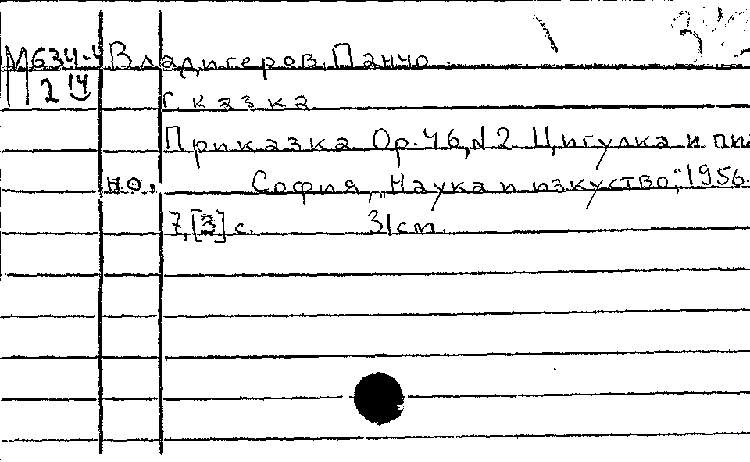 М634-4 Владигеров, Панчо
П 214 Сказка
Приказка Ор. 46, N2 Цигулка и пиа
но. София, „Наука и изкуство," 1956.
7, [3] с. 31 cm.